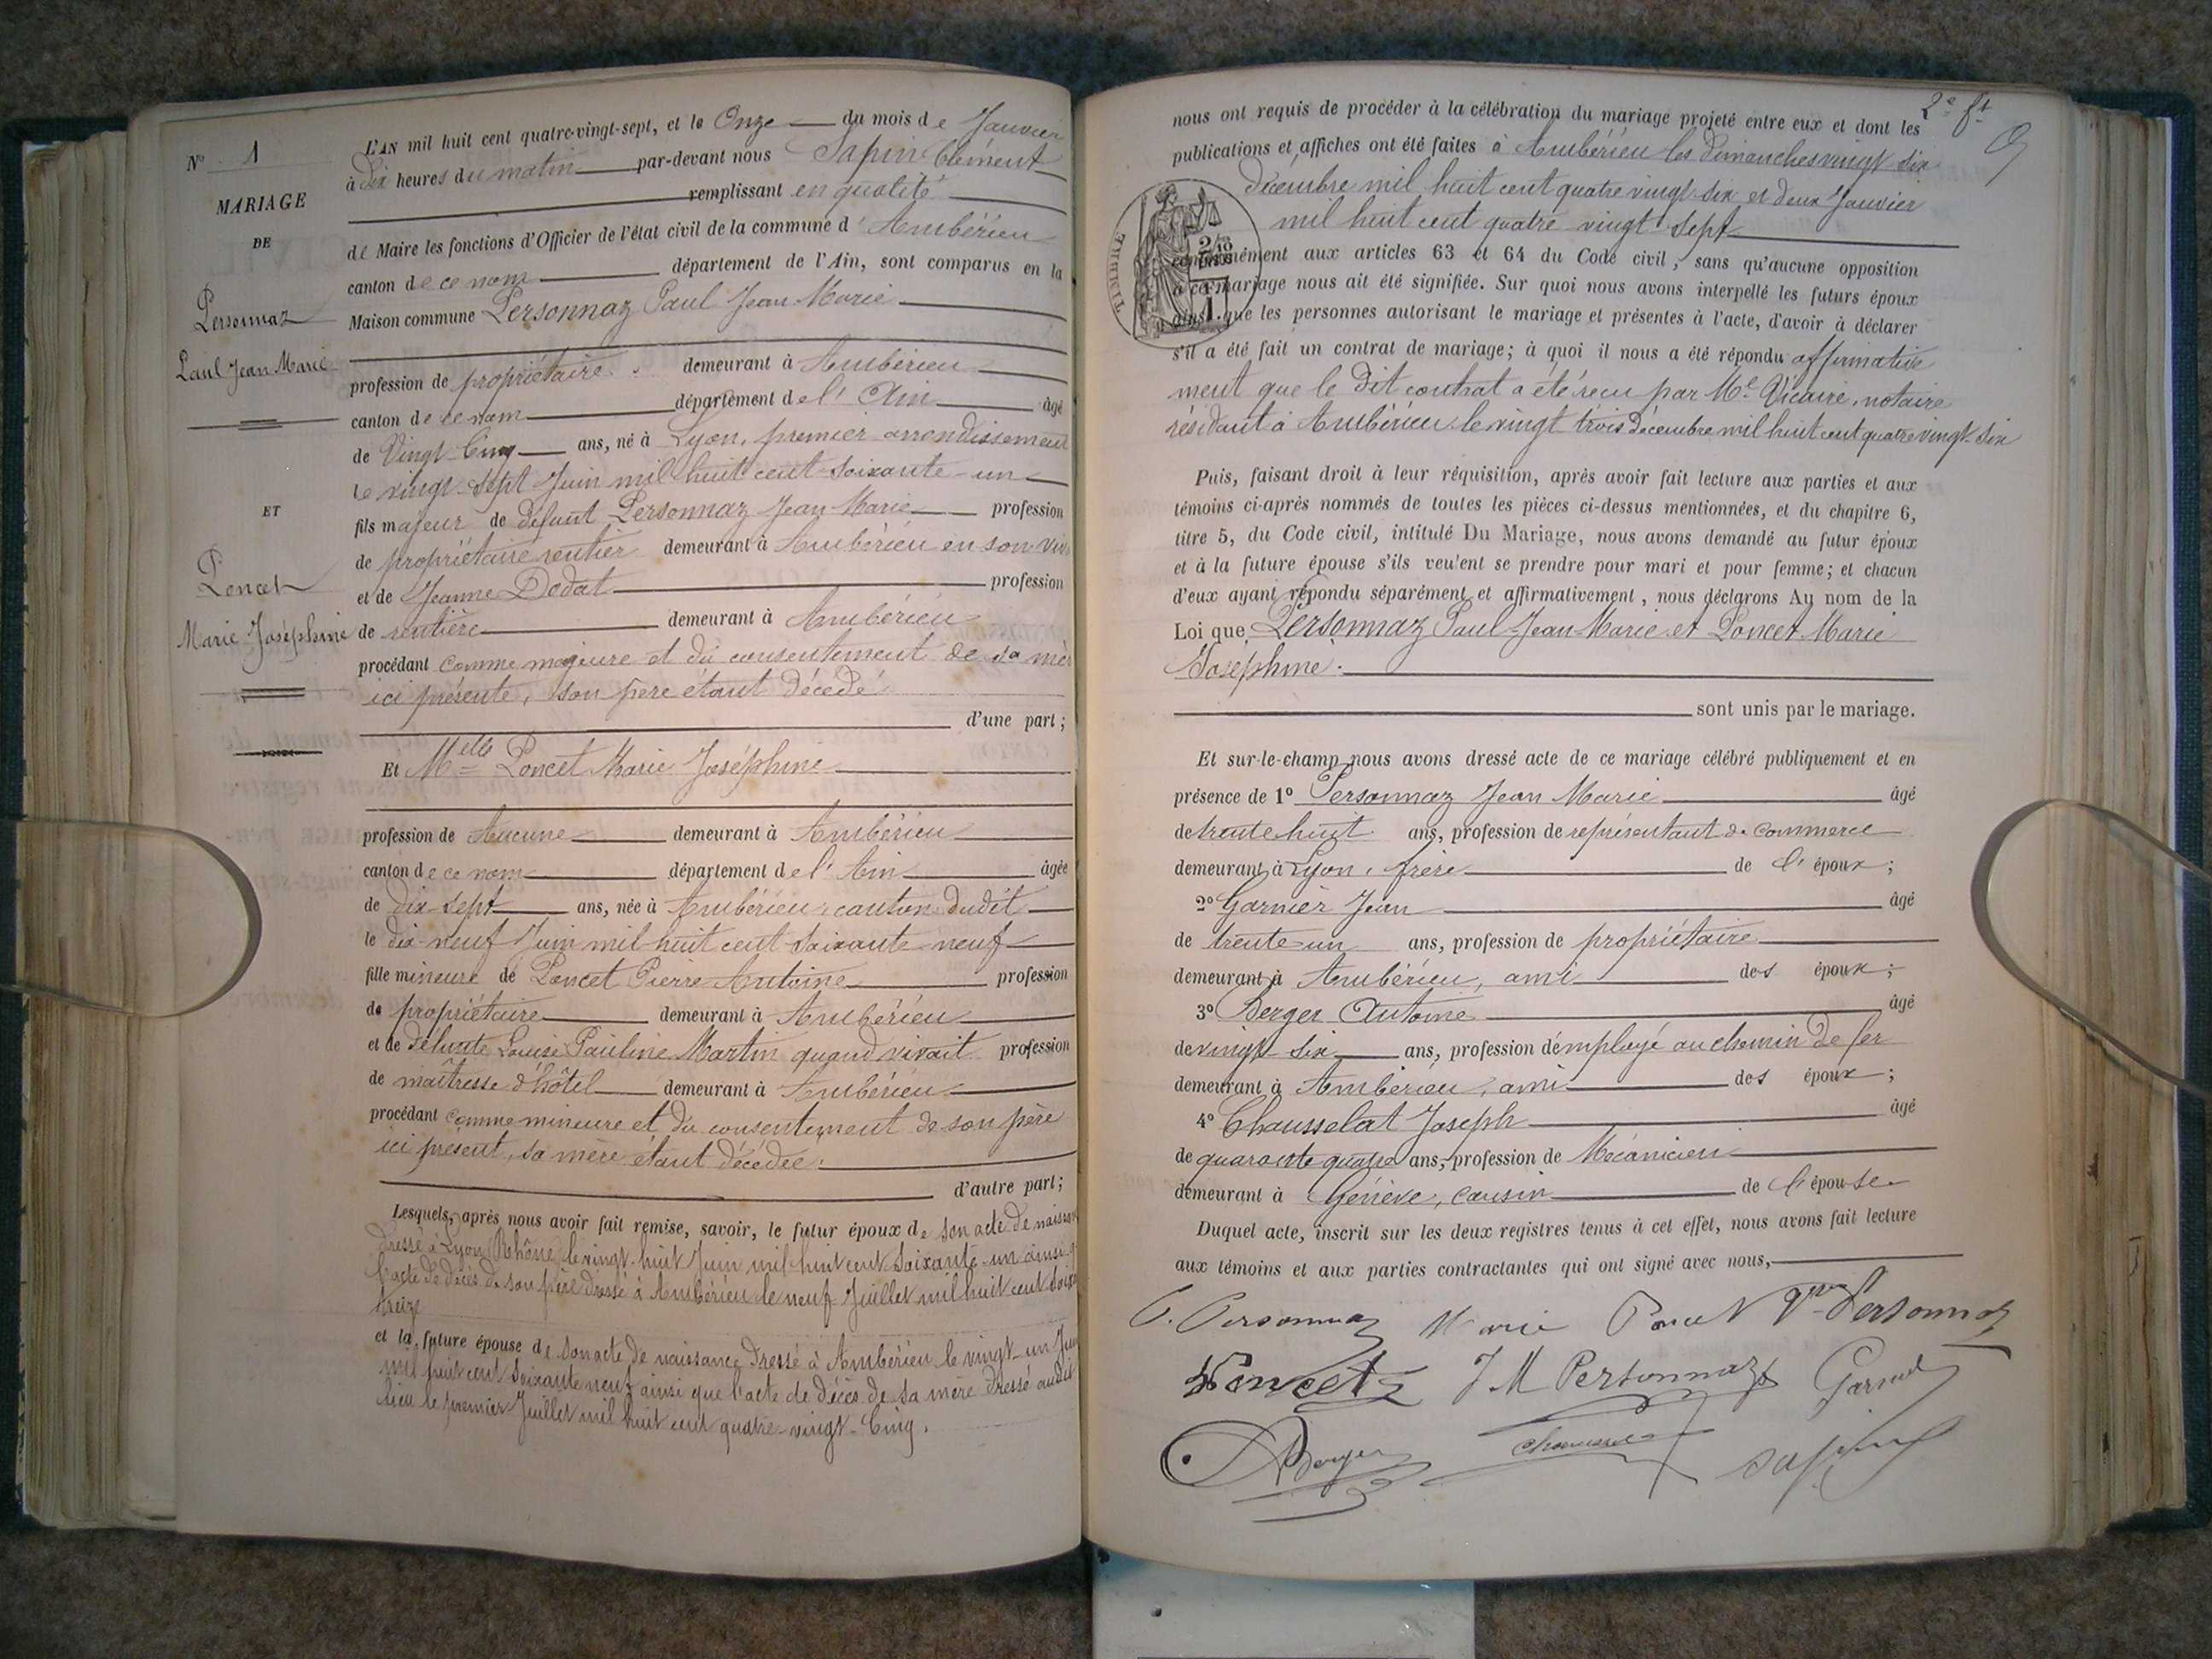 N° 1
MARIAGE
DE
Personnaz
Paul Jean Marie
ET
Poncet
Marie Joséphine
L'AN mil huit cent quatre-vingt-sept, et le Onze du mois de Janvier
à dix heures du matin par-devant nous Sapin Clément
remplissant en qualité
de Maire les fonctions d'Officier de l'état civil de la commune d'Ambérieu
canton de ce nom département de l'Ain, sont comparus en la
Maison commune Personnaz Paul Jean Marie
profession de propriétaire demeurant à Ambérieu
canton de ce nom département de l'Ain âgé
de Vingt-Cinq ans, né à Lyon, premier arrondissement
le vingt-sept Juin mil huit cent soixante-un
fils majeur de défunt Personnaz Jean Marie profession
de propriétaire rentier demeurant à Ambérieu en son viv
et de Jeanne Dodat profession
de rentière demeurant à Ambérieu
procédant comme majeure et du consentement de sa mèr
ici présente, son père étant décédé
d'une part;
Et Melle Poncet Marie Joséphine
profession de Aucune demeurant à Ambérieu
canton de ce nom département de l'Ain âgée
de dix-sept ans, née à Ambérieu, canton dudit
le dix-neuf Juin mil huit cent soixante-neuf
fille mineure de Poncet Pierre Antoine profession
de propriétaire demeurant à Ambérieu
et de défunte Louise Pauline Martin quand vivait profession
de maîtresse d'hôtel demeurant à Ambérieu
procédant comme mineure et du consentement de son père
ici présent, sa mère étant décédée.
d'autre part;
Lesquels, après nous avoir fait remise, savoir, le futur époux de son acte de naissan
dressé à Lyon (Rhône) le vingt-huit Juin mil huit cent soixante-un ainsi q
l'acte de décès de son père dressé à Ambérieu le neuf Juillet mil huit cent soixa
treize
et la future épouse de son acte de naissance dressé à Ambérieu le vingt-un Jui
mil huit cent soixante neuf ainsi que l'acte de décès de sa mère dressé audit
lieu le premier Juillet mil huit cent quatre-vingt-Cinq.
2e ft
nous ont requis de procéder à la célébration du mariage projeté entre eux et dont les
publications et affiches ont été faites à Ambérieu les dimanches vingt-six
décembre mil huit cent quatre vingt-six et deux Janvier
mil huit cent quatre vingt-sept
TIMBRE
2/10
EN SUS
conformément aux articles 63 et 64 du Code civil, sans qu'aucune opposition
à ce mariage nous ait été signifiée. Sur quoi nous avons interpellé les futurs époux
ainsi que les personnes autorisant le mariage et présentes à l'acte, d'avoir à déclarer
s'il a été fait un contrat de mariage; à quoi il nous a été répondu affirmative
ment que le dit contrat a été reçu par Me Vicaire, notaire
résidant à Ambérieu le vingt trois décembre mil huit cent quatre vingt-six
Puis, faisant droit à leur réquisition, après avoir fait lecture aux parties et aux
témoins ci-après nommés de toutes les pièces ci-dessus mentionnées, et du chapitre 6,
titre 5, du Code civil, intitulé Du Mariage, nous avons demandé au futur époux
et à la future épouse s'ils veulent se prendre pour mari et pour femme; et chacun
d'eux ayant répondu séparément et affirmativement, nous déclarons Au nom de la
Loi que Personnaz Paul-Jean-Marie et Poncet Marie
Joséphine.
sont unis par le mariage.
Et sur-le-champ nous avons dressé acte de ce mariage célébré publiquement et en
présence de 1° Personnaz Jean Marie âgé
de trente huit ans, profession de représentant de commerce
demeurant à Lyon, frère de l'époux;
2° Garnier Jean âgé
de trente-un ans, profession de propriétaire
demeurant à Ambérieu, ami des époux;
3° Berger Antoine âgé
de vingt-six ans, profession d'employé au chemin de fer
demeurant à Ambérieu, ami des époux;
4° Chausselat Joseph âgé
de quarante quatre ans, profession de Mécanicien
demeurant à Génève, cousin de l'épouse.
Duquel acte, inscrit sur les deux registres tenus à cet effet, nous avons fait lecture
aux témoins et aux parties contractantes qui ont signé avec nous,
P. Personnaz Marie Poncet Vve Personnaz
Poncet J M Personnaz
A Berger Sapin